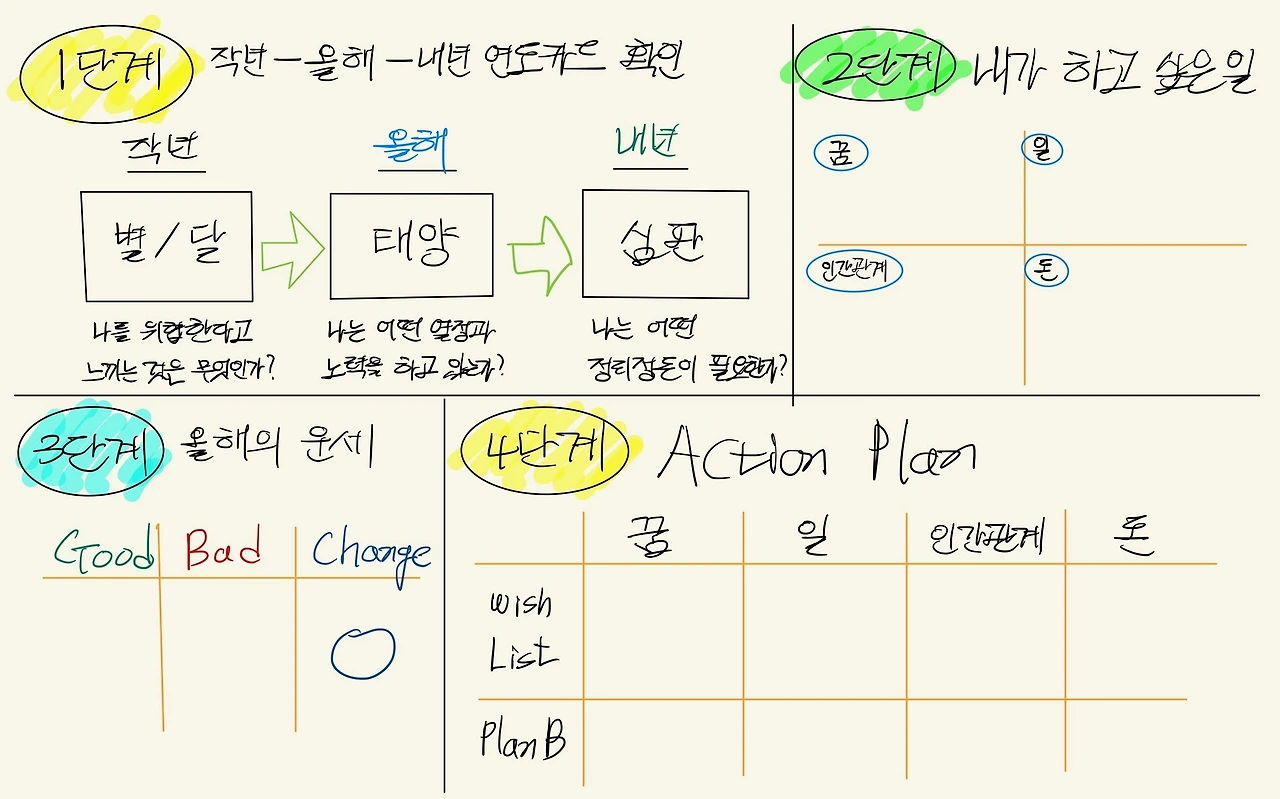 1단계 작년-올해-내년 연도카드 확인
작년 올해 내년
별/달 태양 심판
나를 위협한다고
느끼는 것은 무엇인가?
나는 어떤 열정과
노력을 하고 있는가?
나는 어떤
정리정돈이 필요한가?
2단계 내가 하고 싶은일
꿈 일
인간관계 돈
3단계 올해의 운세
Good Bad Change
4단계 Action Plan
꿈 일 인간관계 돈
wish
List
Plan B